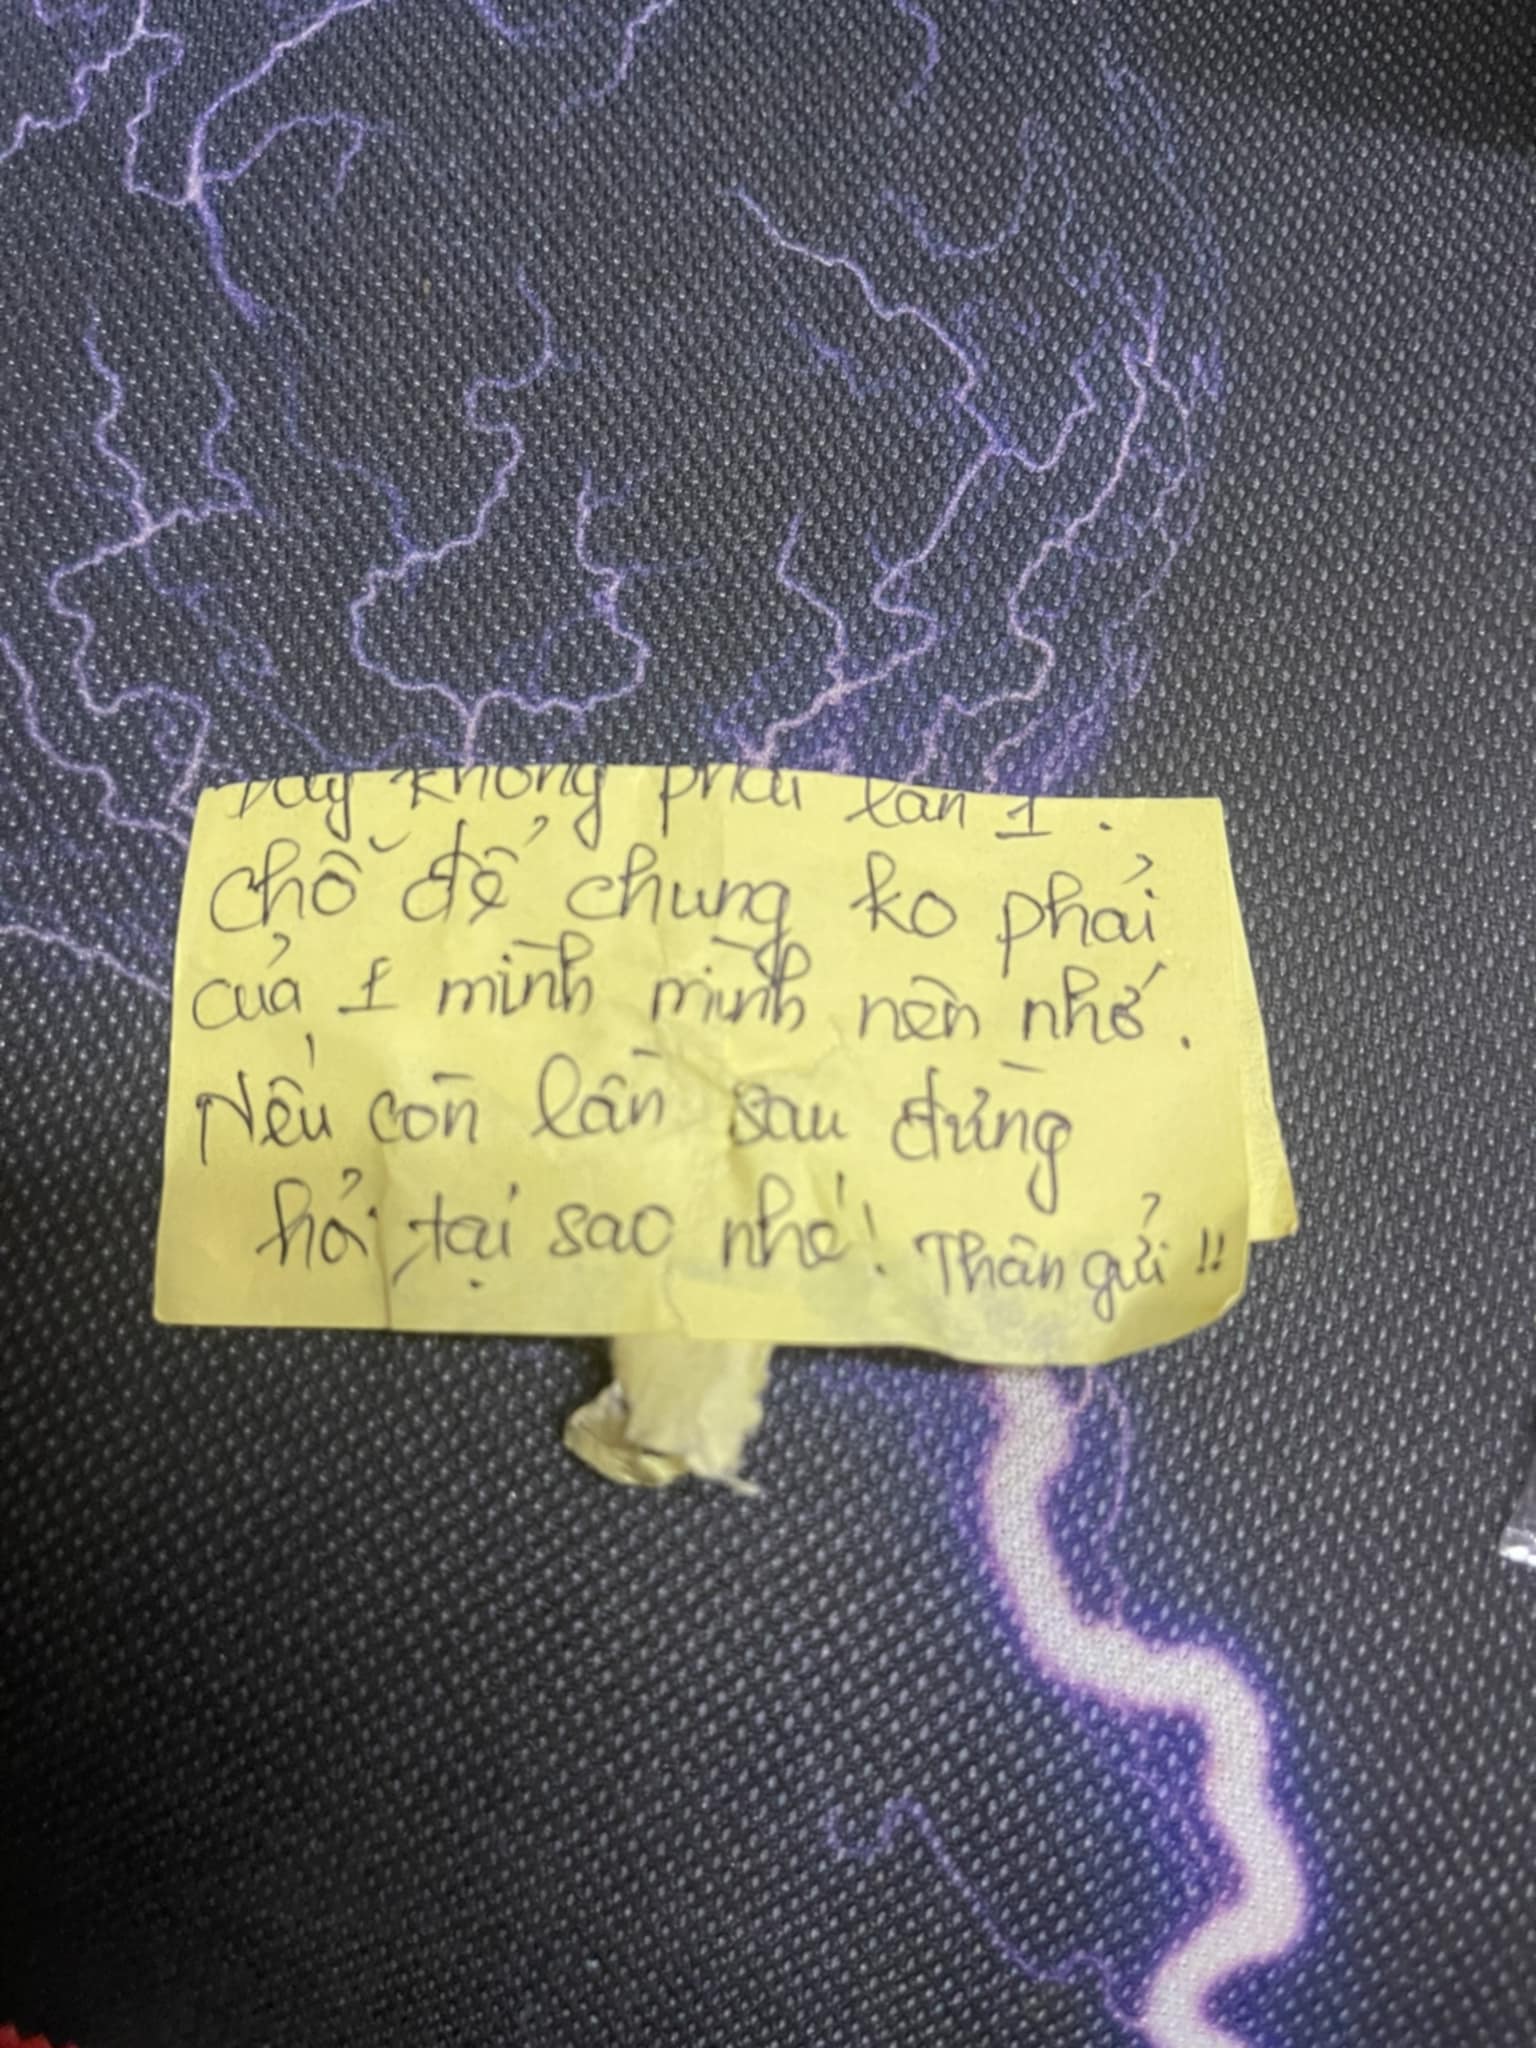 Đây không phải lần 1.
Chỗ để chung ko phải
của 1 mình mình nên nhớ.
Nếu còn lần sau đừng
hỏi tại sao nhé! Thân gửi !!